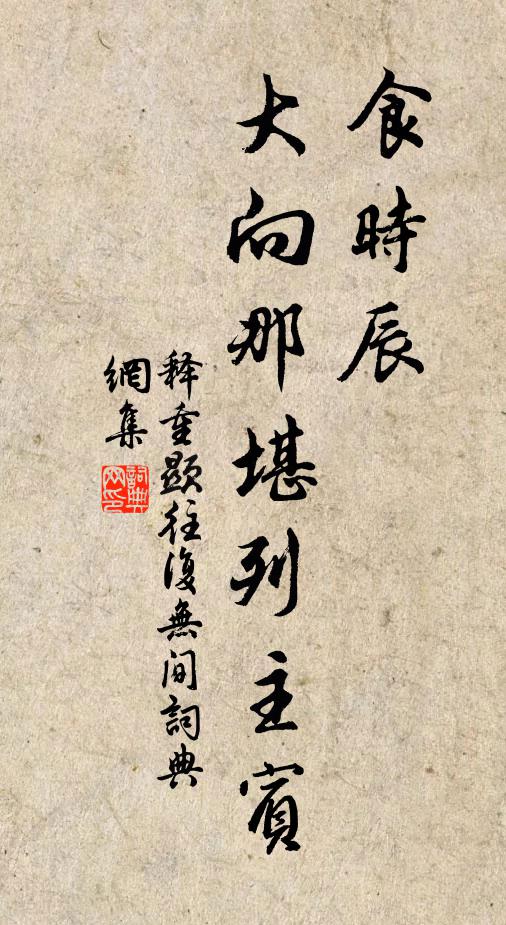 食時辰
大向那堪列主賓
释重顯往復無間詞典
網集
詞典
网印